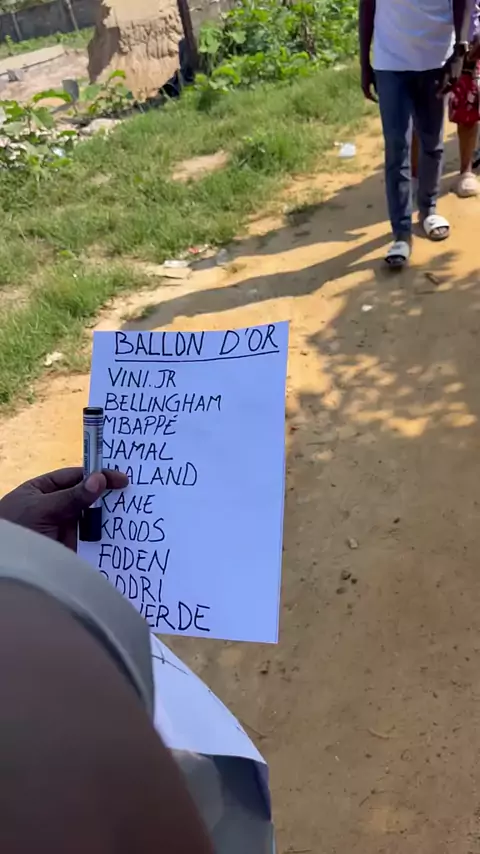 BALLON D'OR
VINI.JR
BELLINGHAM
MBAPPÉ
YAMAL
HAALAND
KANE
KROOS
FODEN
RODRI